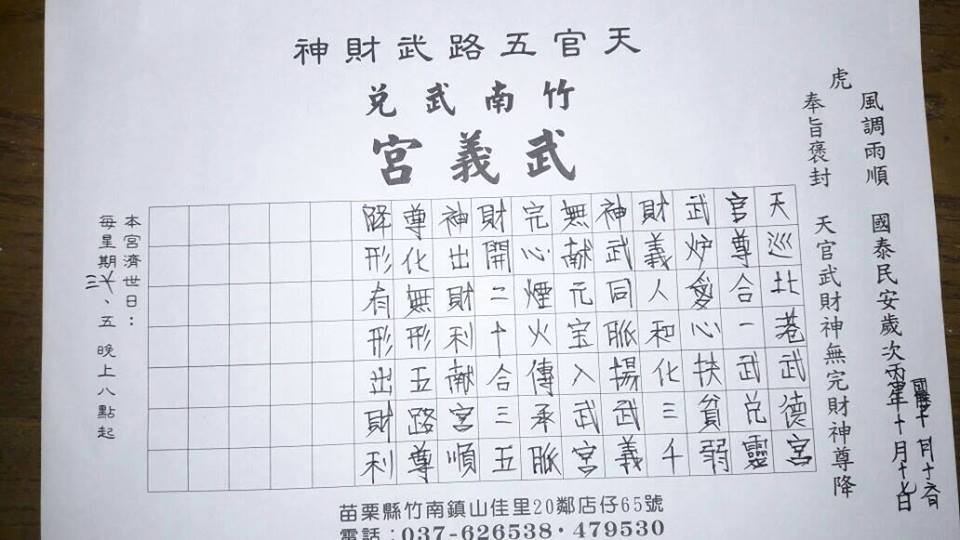 天官五路武財神
竹南武兌
武義宮
風調雨順　國泰民安歲次丙申年十月十七日
虎
奉旨褒封　天官武財神無完財神尊降
天巡北巷武德宮
官尊合一武兌靈
武炉愛心扶貧弱
財義人和化三千
神武同脈揚武義
無献元宝入武宮
完心煙火傳承脈
財開二十合三五
神出財利献宮順
尊化無形五路尊
降形有形出財利
本宮濟世日：
每星期三、五 晚上八點起
苗栗縣竹南鎮山佳里20鄰店仔65號
電話：037-626538・479530